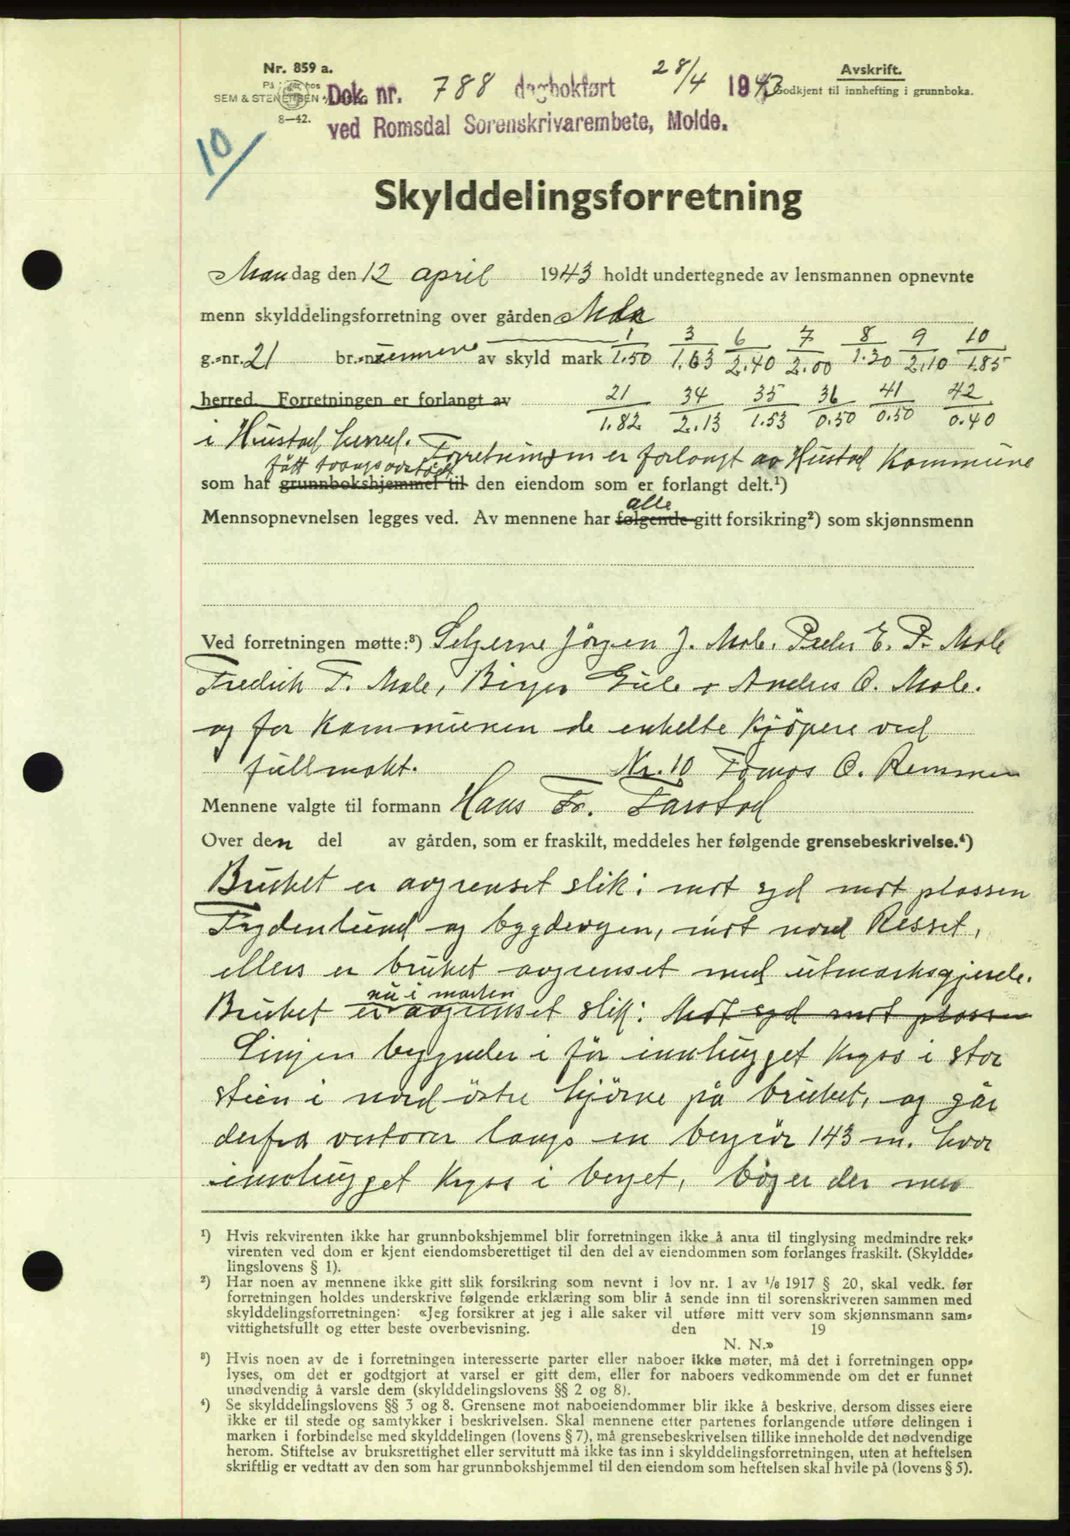 Nr. 859 a.
Avskrift.
SEM & STENERSEN
Dok. nr. 788 dagbokført 28/4 1943
Godkjent til innhefting i grunnboka.
8-42.
ved Romsdal Sorenskrivarembete, Molde.
10
Skylddelingsforretning
Mandag den 12 april 1943 holdt undertegnede av lensmannen opnevnte
menn skylddelingsforretning over gården
g.-nr. 21 br.-nr. av skyld mark 1/1.50 3/1.63 6/2.40 7/2.00 8/1.30 9/2.10 10/1.85
herred. Forretningen er forlangt av 21/1.82 34/2.13 35/1.53 36/0.50 41/0.50 42/0.40
i Hustad herred. Forretningen er forlangt av Hustad Kommune
fått
som har grunnbokshjemmel til den eiendom som er forlangt delt.¹)
alle
Mennsopnevnelsen legges ved. Av mennene har følgende gitt forsikring²) som skjønnsmenn
Ved forretningen møtte:³) Selgerne Jörgen J. Male. Peder E. P. Male
Fredrik F. Male, Birger Eide + Anders O. Male.
og for Kommunen de enkelte Kjöpere ved
fullmakt. Nr. 10 Tomas O. Remmen
Mennene valgte til formann Hans Fr. Farstad
Over den del av gården, som er fraskilt, meddeles her følgende grensebeskrivelse.⁴)
Bruket er avgrenset slik: mot syd mot plassen
Frydenlund og bygdevegen, mot nord Resset,
ellers er bruket avgrenset med utmarksgjerde.
nu i marken
Bruket er avgrenset slik: Mot syd mot plassen
Linjen begynder i för innhugget Kryss i stor
stein i nord östre hjörne på bruket, og går
derfra vestover langs en bergrör 143 m. hvor
innhugget Kryss i berget, böyer der med
¹) Hvis rekvirenten ikke har grunnbokshjemmel blir forretningen ikke å anta til tinglysing medmindre rek-
virenten ved dom er kjent eiendomsberettiget til den del av eiendommen som forlanges fraskilt. (Skyldde-
lingslovens § 1).
²) Har noen av mennene ikke gitt slik forsikring som nevnt i lov nr. 1 av 1/6 1917 § 20, skal vedk. før
forretningen holdes underskrive følgende erklæring som blir å sende inn til sorenskriveren sammen med
skylddelingsforretningen: «Jeg forsikrer at jeg i alle saker vil utføre mitt verv som skjønnsmann sam-
vittighetsfullt og etter beste overbevisning. den 19
N. N.»
³) Hvis noen av de i forretningen interesserte parter eller naboer ikke møter, må det i forretningen opp-
lyses, om det er godtgjort at varsel er gitt dem, eller for naboers vedkommende om det er funnet
unødvendig å varsle dem (skylddelingslovens §§ 2 og 8).
⁴) Se skylddelingslovens §§ 3 og 8. Grensene mot naboeiendommer blir ikke å beskrive, dersom disses eiere
ikke er til stede og samtykker i beskrivelsen. Skal mennene etter partenes forlangende utføre delingen i
marken i forbindelse med skylddelingen (lovens § 7), må grensebeskrivelsen tillike inneholde det nødvendige
herom. Stiftelse av bruksrettighet eller servitutt må ikke tas inn i skylddelingsforretningen, uten at heftelsen
skriftlig er vedtatt av den som har grunnbokshjemmel til den eiendom som heftelsen skal hvile på (lovens § 5).